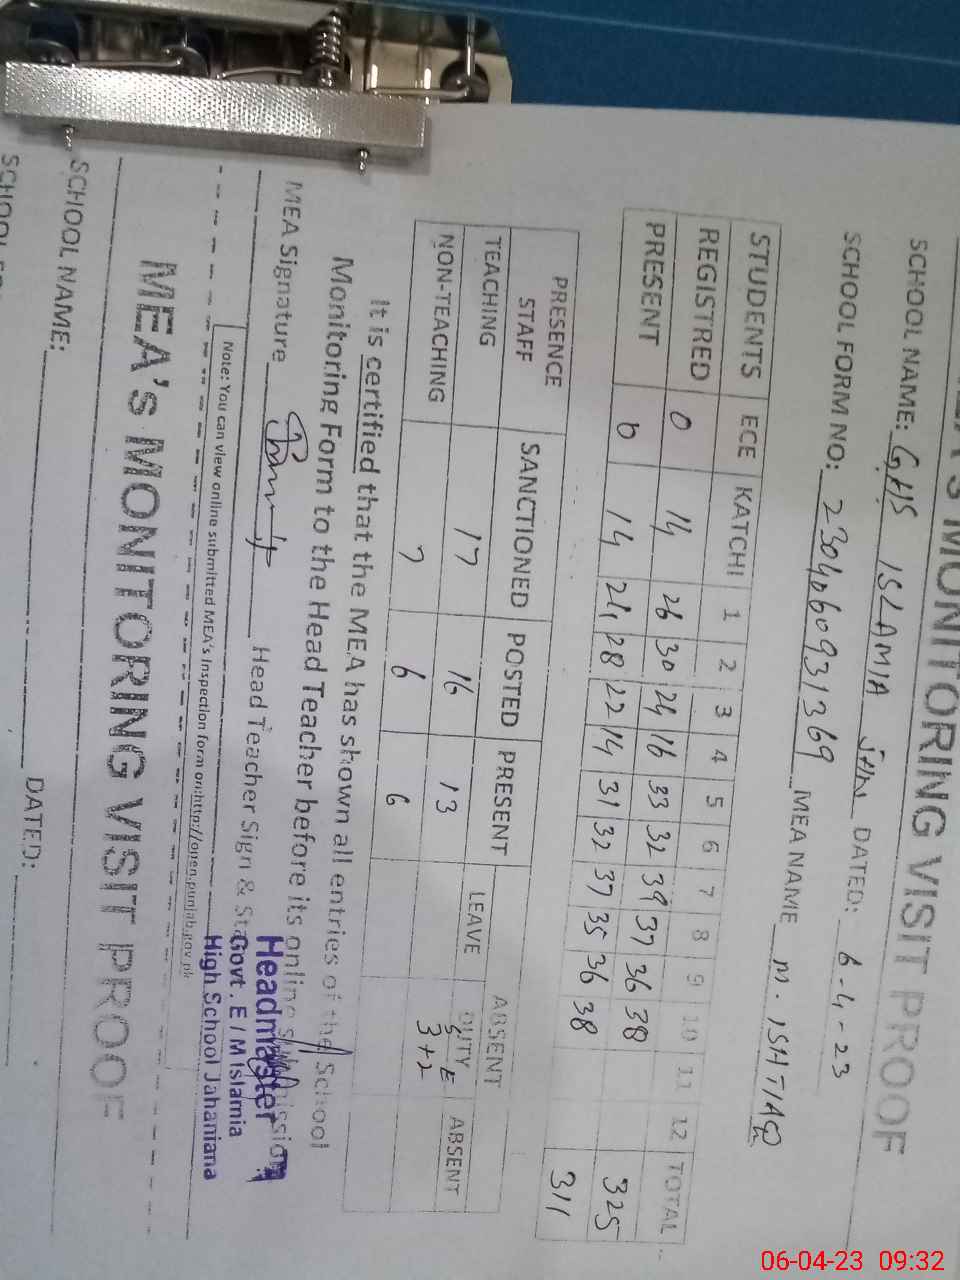 MEA'S MONITORING VISIT PROOF
SCHOOL NAME: GHS ISLAMIA DATED: 6-4-23
SCHOOL FORM NO: 2304060931369 MEA NAME M. ISHTIAQ
STUDENTS ECE KATCHI 1 2 3 4 5 6 7 8 9 10 11 12 TOTAL
REGISTRED 0 14 26 30 24 16 33 32 39 37 36 38 325
PRESENT 0 14 24 28 22 14 31 32 37 35 36 38 311
PRESENCE STAFF SANCTIONED POSTED PRESENT ABSENT
LEAVE DUTY ABSENT
TEACHING 17 16 13 3+2
NON-TEACHING 7 6 6
It is certified that the MEA has shown all entries of the School
Monitoring Form to the Head Teacher before its online submission
MEA Signature Head Teacher Sign &
Headmaster
Govt. E / M Islamia
High School Jahaniana
Note: You can view online submitted MEA's Inspection form on:http://open.punjab.gov.pk
MEA's MONITORING VISIT PROOF
SCHOOL NAME: DATED:
SCHOOL
06-04-23 09:32